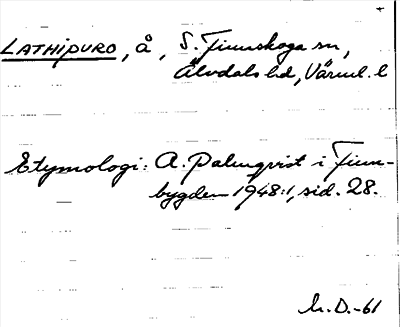 LATHIPURO, å, S. Finnskoga sn,
Älvdals hd, Värml. l
Etymologi: A. Palmqvist i Finn-
bygden 1948:1, sid. 28.
M.D.-61